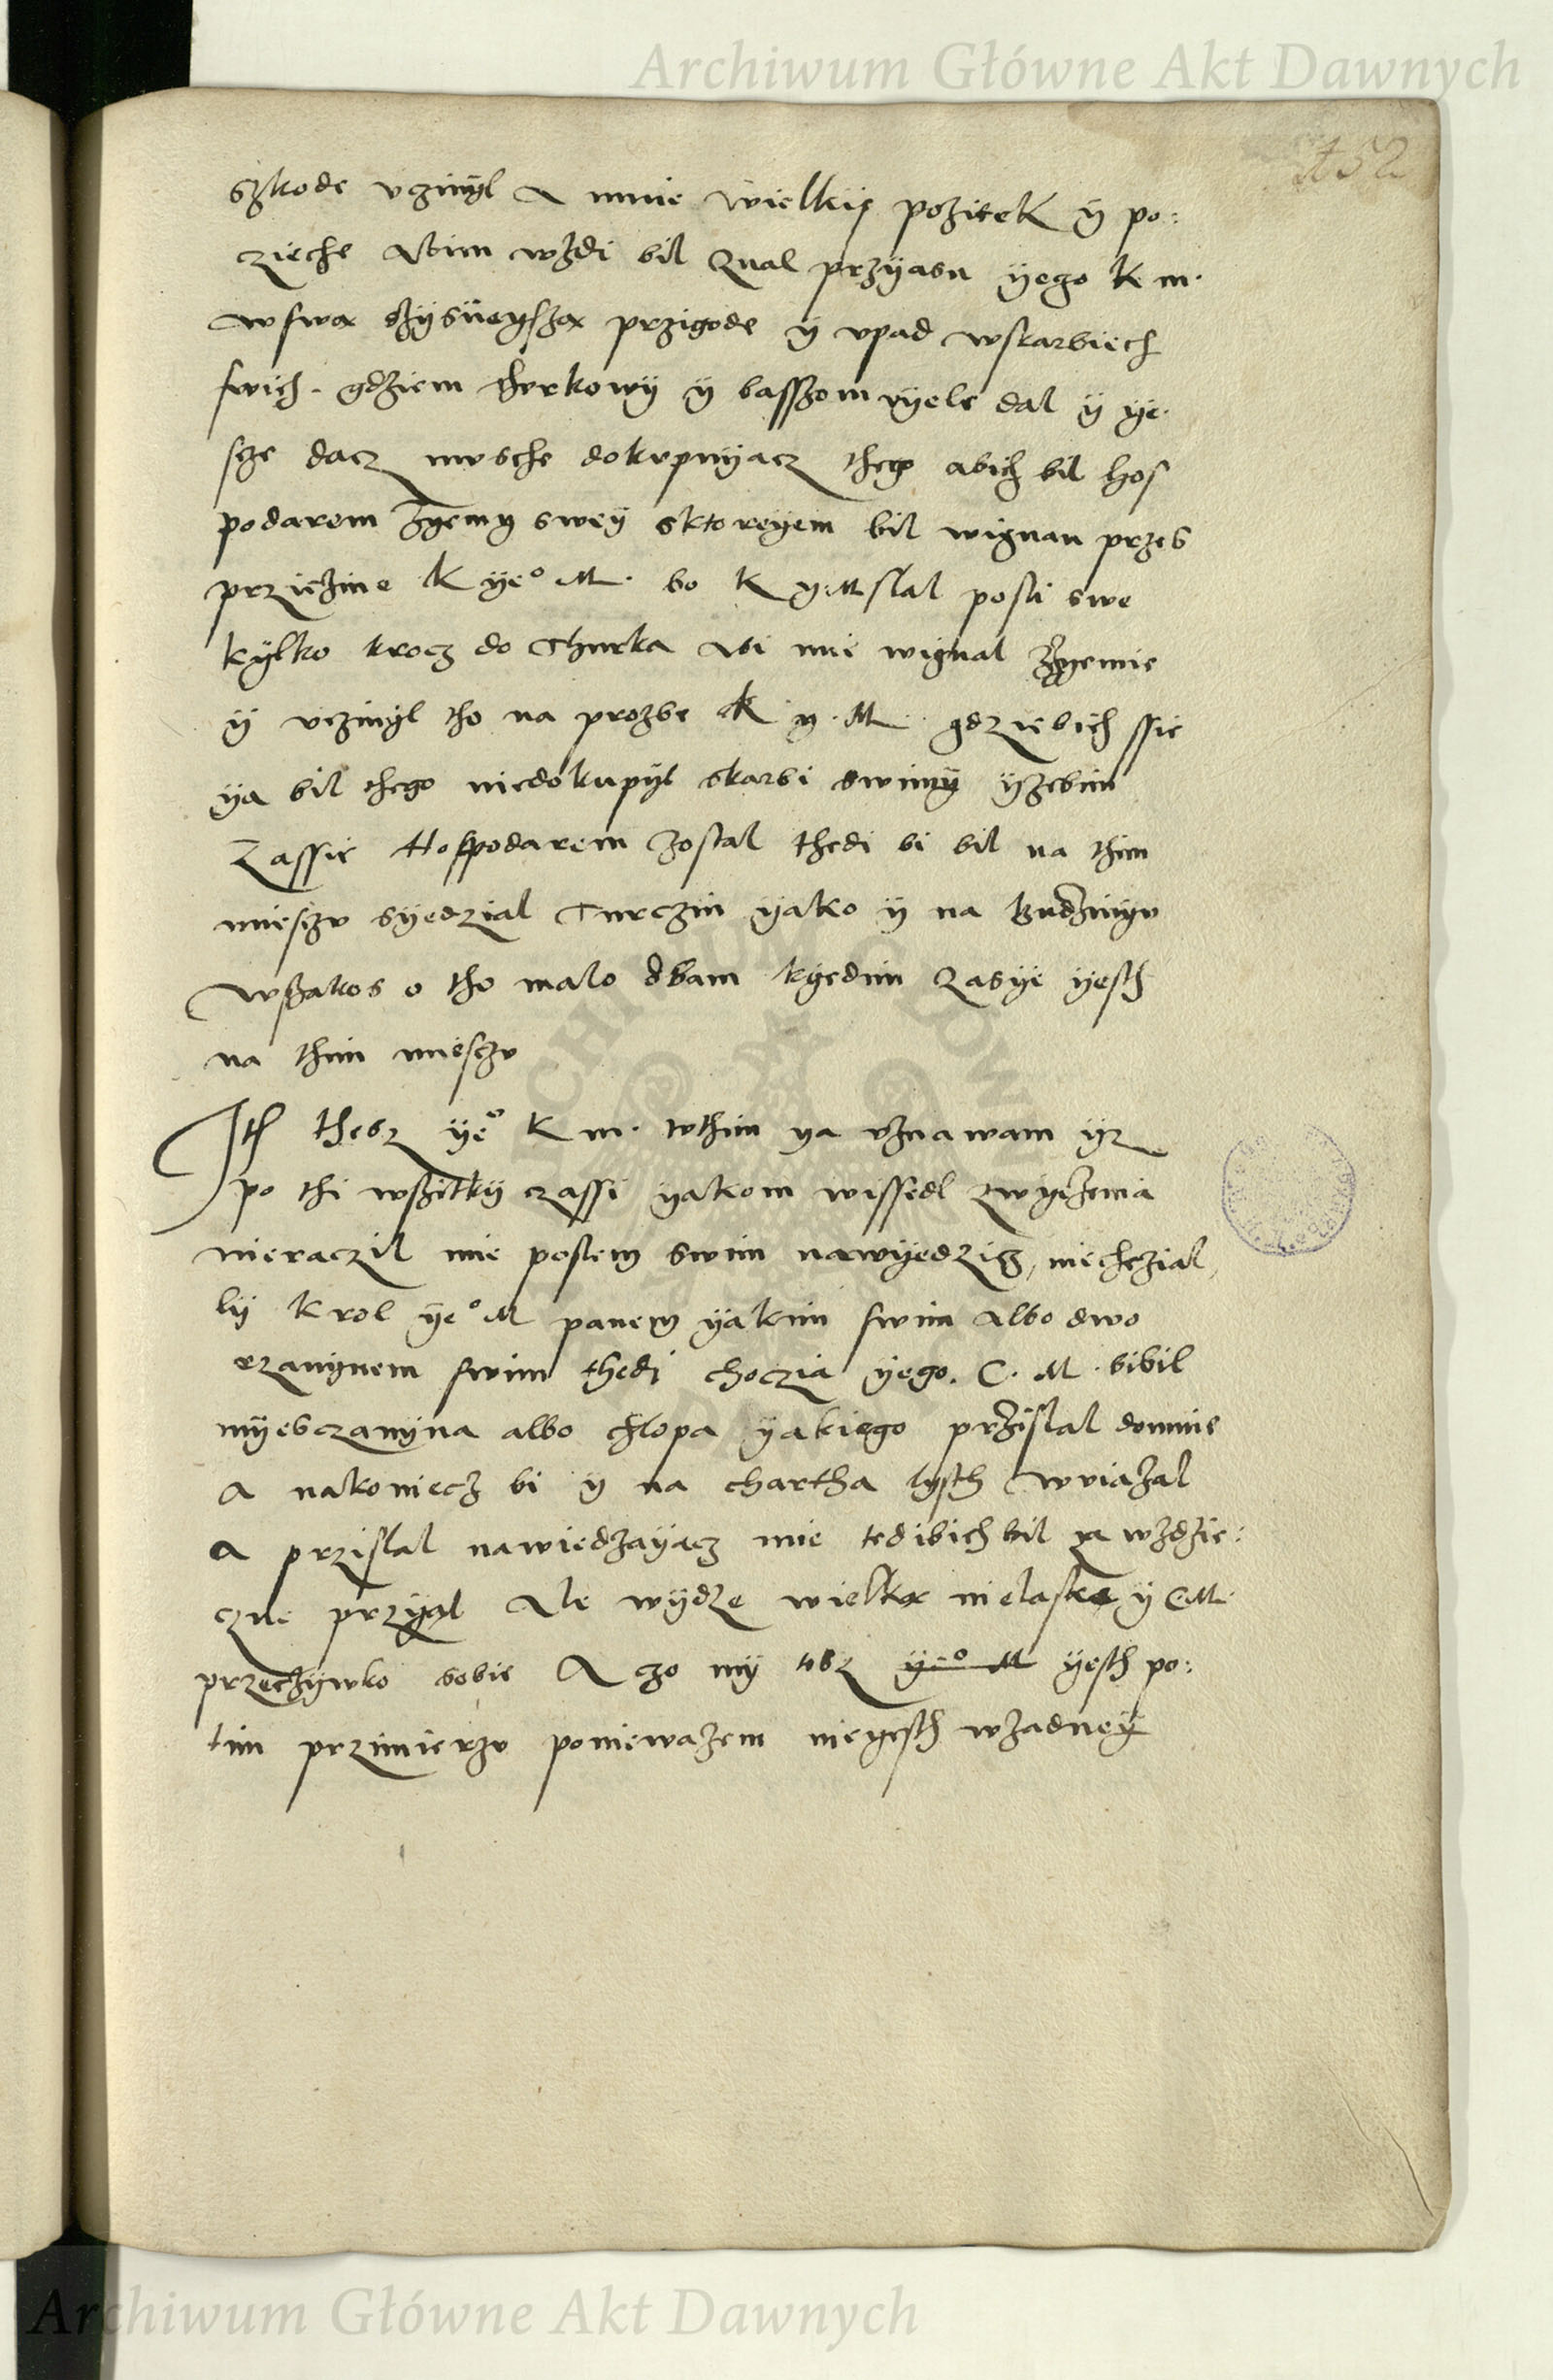 Archiwum Główne Akt Dawnych
152
szkode vczinyl A mnie wielkij pozitek ÿ po:
zieche Abim wzdi bil znal przÿasn ÿego K m.
w swa
przigode ÿ vpad wskarbiech
swich. gdziem thvrkowÿ ÿ basszom vÿele dal ÿ ÿe.
scze dacz mvsche dokvpvyacz thego abich bil hos
podarem zyemy sweÿ sktoreÿem bil wignan przes
przicżine K ÿeº M. bo K y. M slal posli swe
kÿlko krocz do Thurka Abi mie wignal zyemie
ÿ vczinÿl tho na prozbe K y. M. gdziebich ssie
ÿa bil thego niedokupÿl skarbi swimy yzebim
zassie Hospodarem zostal thedi bi bil na thim
miesczv sÿedzial Turczin ÿako ÿ na Budzinyv
wszakos o tho malo dbam kÿedim zasÿe ÿesth
na thim miesczv
Ith thesz ÿeº K m. wthim ya vznawam yz
po thi wszitkÿ czassi ÿakom wissedl zwyezenia
nieraczil mie poslem swim nawÿedzicz, niechczial,
lÿ Krol ÿeº M panem ÿakim swim Albo dwo
rzanynem swim thedi choczia ÿego. C. M. bibil
mÿesczanyna albo chlopa ÿakiego przislal domnie
A nakoniecz bi y na chartha lysth wviazal
A przislal nawiedzaÿacz mie tedibich bil za wzdzie:
czne przÿal Ale wÿdze wielka nielaske ÿ C M.
przeczÿwko sobie A czo mÿ tesz ÿeº M ÿesth po:
tim przimierzv poniewazem nieÿesth wzadneÿ
Archiwum Główne Akt Dawnych